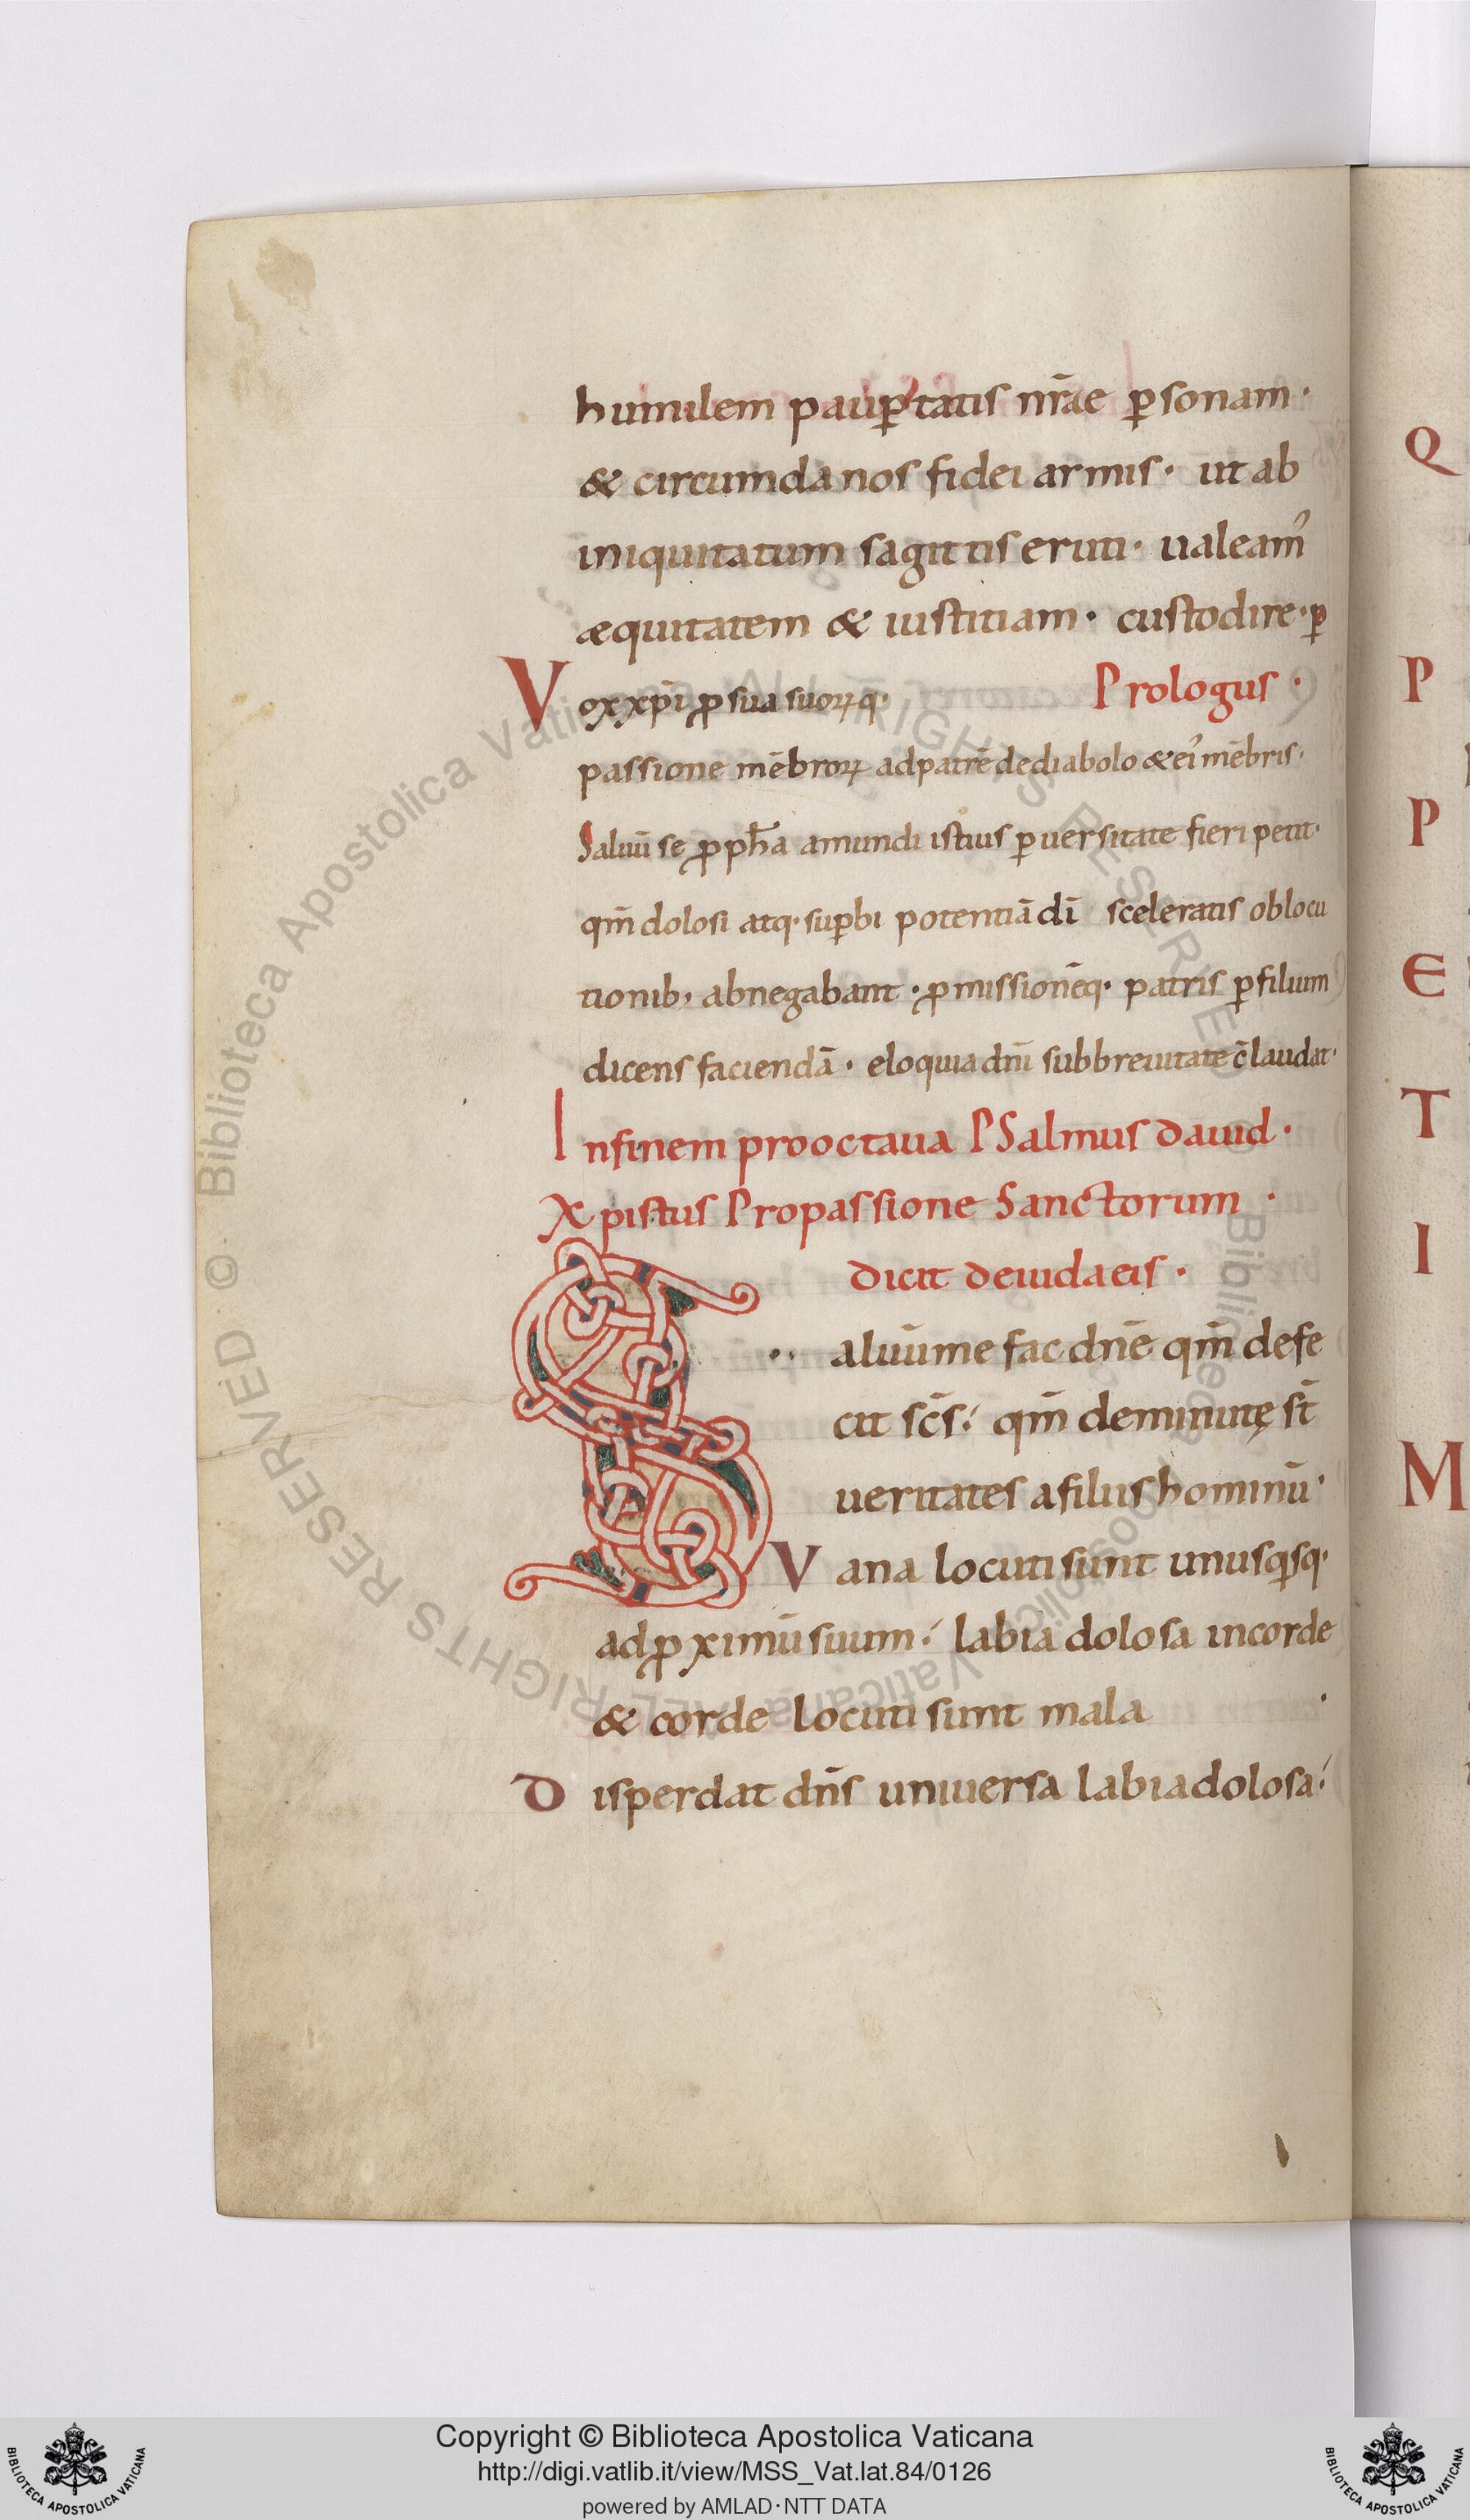 humilem paup̱tatis nr̄ae p̱sonam·
& circumda nos fidei armis· ut ab
iniquitatum sagittis eruti· ualeam᾿
æquitatem & iustitiam· custodire· p̱
Vox xp̄i ꝓ sua suoꝝq· Prologus·
passione mēbroꝝ ad patrē de diabolo & ei᾿ mēbris·
Saluū se ꝓph̄a a mundi istius p̱uersitate fieri petit·
qm̄ dolosi atq· sup̱bi potentiā dī sceleratis oblocu
tionib; abnegabant· ꝓmissionēq· patris p̱ filium
dicens faciendā· eloquia dnī sub breuitate c̄laudat·
In finem pro octaua PSalmus dauid·
Xpistus Pro passione Sanctorum·
dicit de iudaeis·
Saluūme fac dnē qm̄ defe
cit sc̄s: qm̄ deminutę st̄
ueritates a filiis hominū·
Vana locuti sunt unusqsq·
ad ꝓximū suum: labia dolosa in corde
& corde locuti sunt mala·
Disperdat dn̄s uniuersa labia dolosa:
Q
P
P
E
T
I
M
© Biblioteca Apostolica Vaticana ALL RIGHTS RESERVED
© Biblioteca Apostolica Vaticana ALL RIGHTS RESERVED
Copyright © Biblioteca Apostolica Vaticana
http://digi.vatlib.it/view/MSS_Vat.lat.84/0126
powered by AMLAD·NTT DATA
BIBLIOTECA APOSTOLICA VATICANA
BIBLIOTECA APOSTOLICA VATICANA